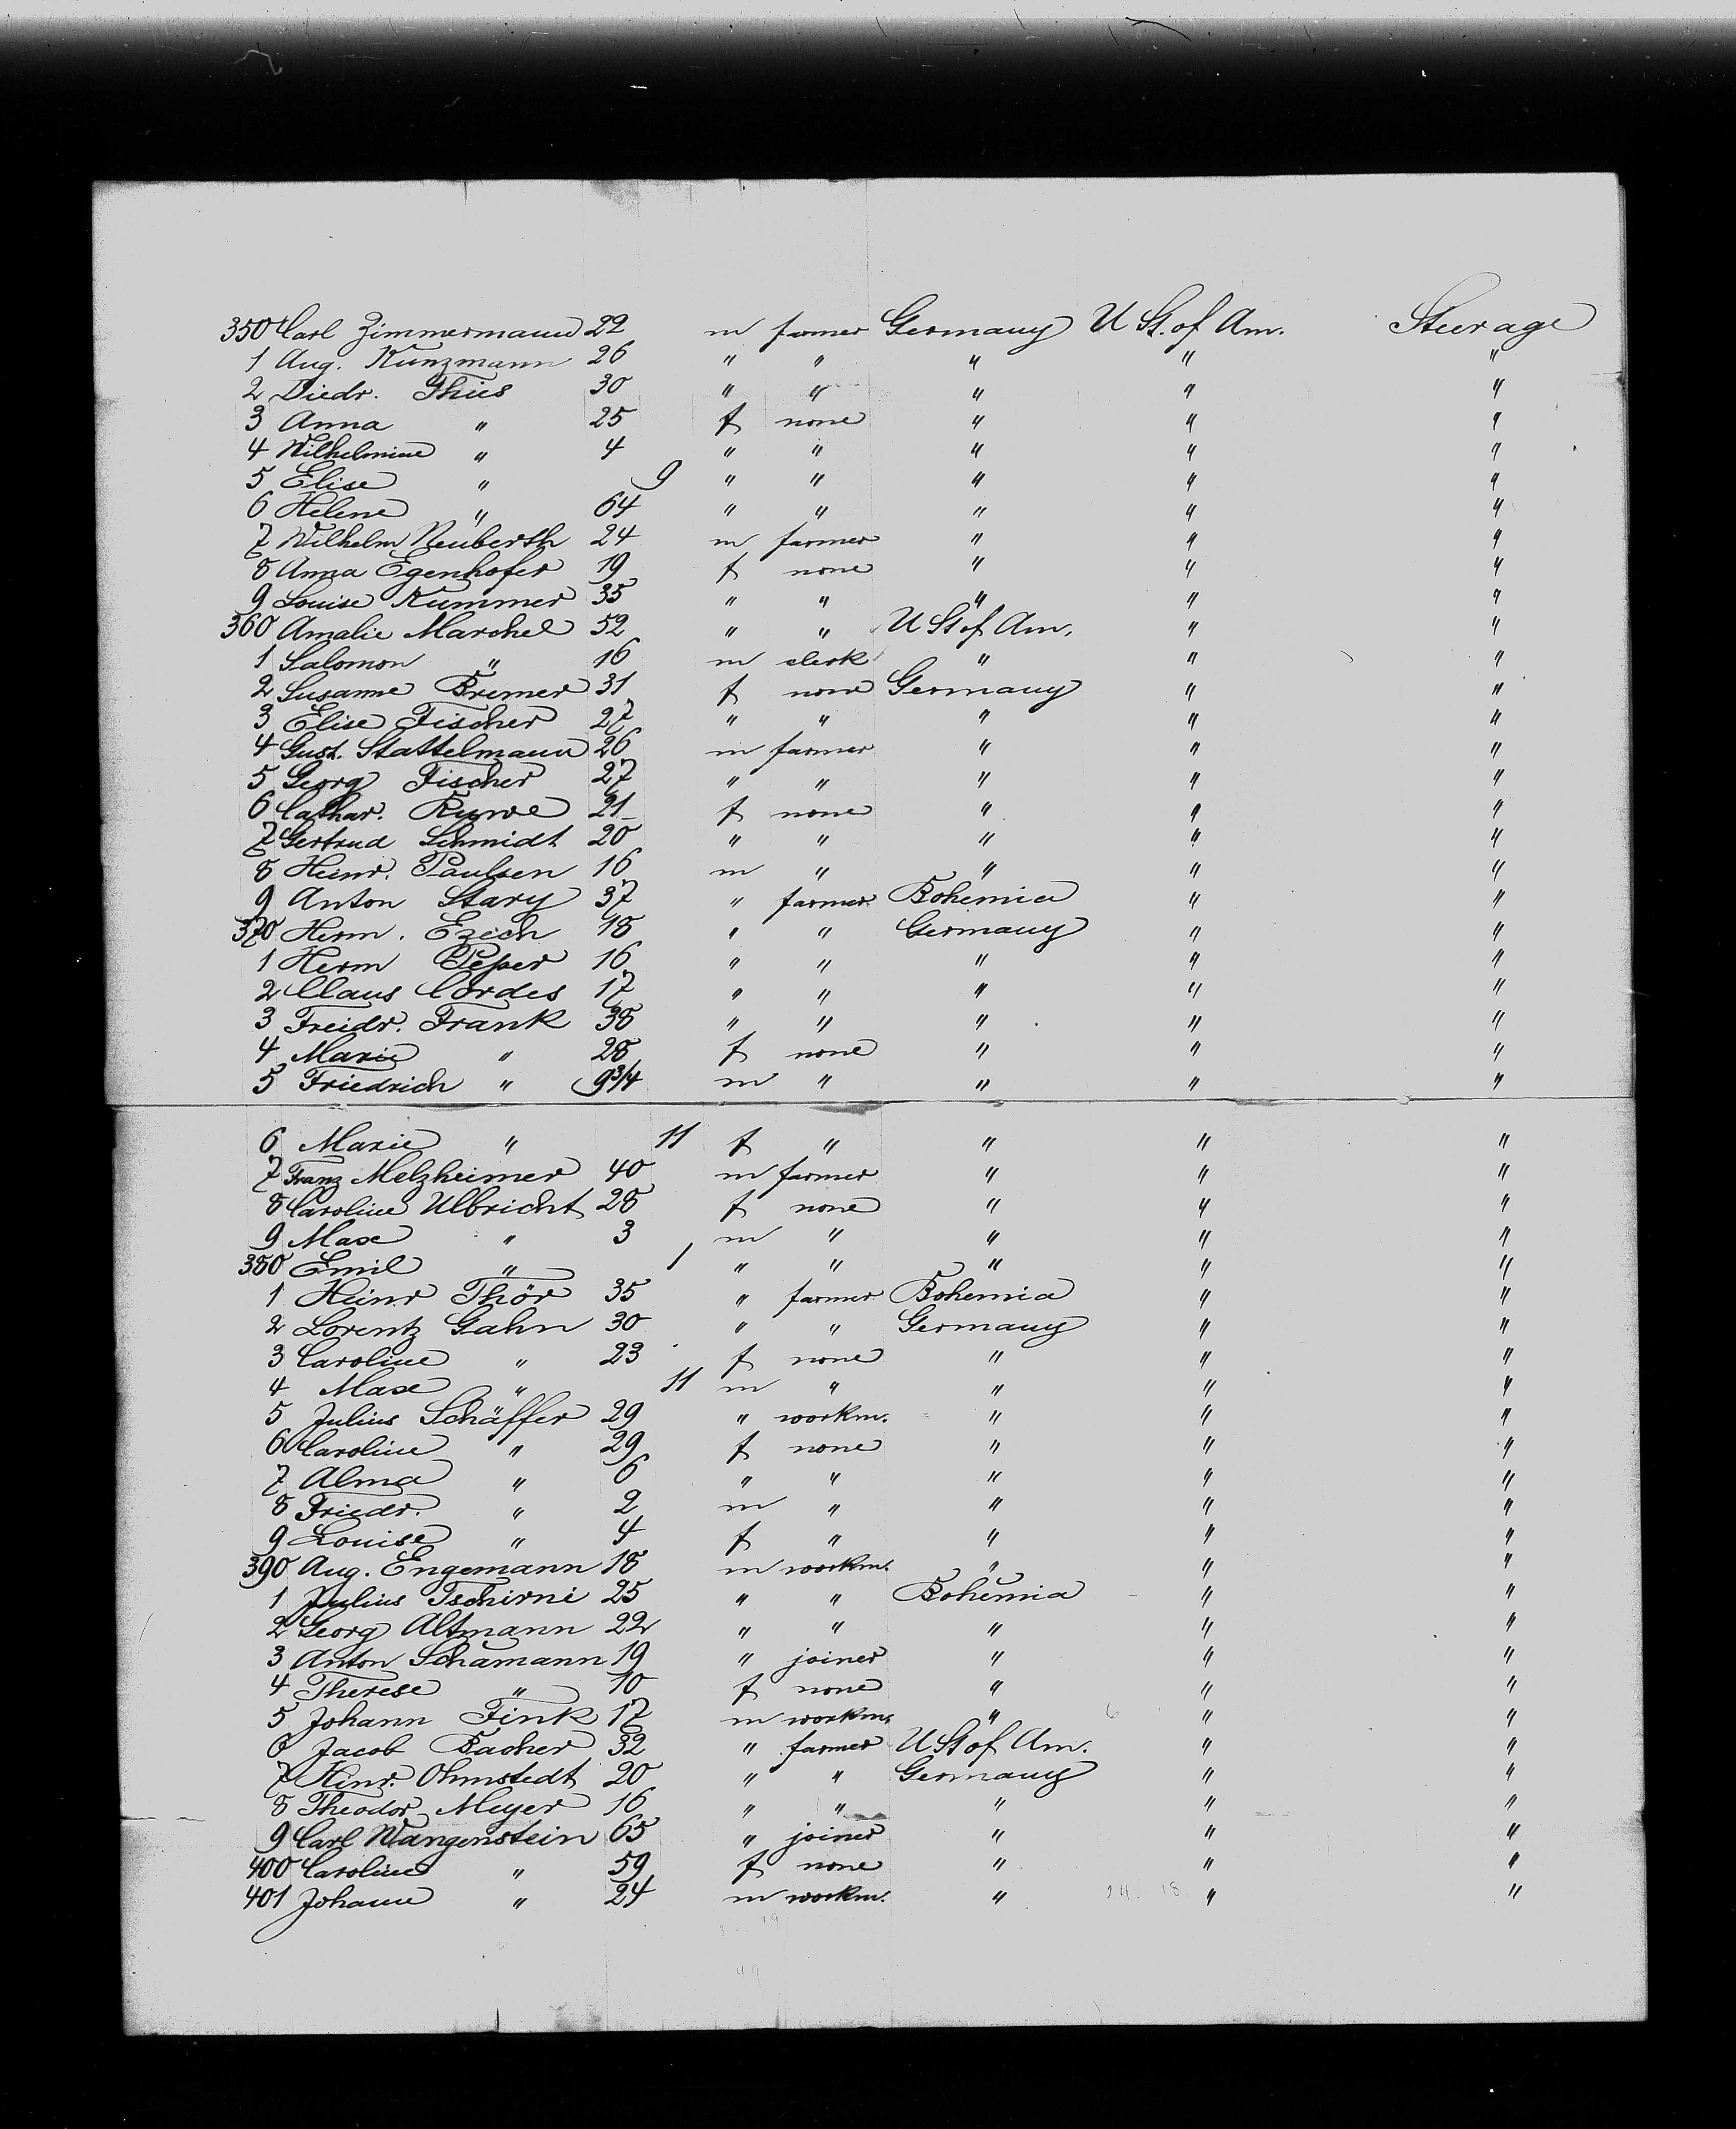 350 Carl Zimmermann 22 m farmer Germany U St. of Am. Steerage
1 Aug. Kunzmann 26 " " " " "
2 Diedr. Thies 30 " " " " "
3 Anna " 25 f none " " "
4 Wilhelmine " 4 " " " " "
5 Elise " 9 " " " " "
6 Helene " 64 " " " " "
7 Wilhelm Neuberth 24 m farmer " " "
8 Anna Egenhofer 19 f none " " "
9 Louise Kummer 35 " " " " "
360 Amalie Marchel 52 " " U St of Am. " "
1 Salomon " 16 m clerk " " "
2 Susanne Bremer 31 f none Germany " "
3 Elise Fischer 27 " " " " "
4 Gust. Stattelmann 26 m farmer " " "
5 Georg Fischer 27 " " " " "
6 Cathar. Ruwe 21 f none " " "
7 Gertrud Schmidt 20 " " " " "
8 Heinr. Paulsen 16 m " " " "
9 Anton Stary 37 " farmer Bohemia " "
370 Herm. Ezech 18 " " Germany " "
1 Herm Peper 16 " " " " "
2 Claus Cordes 17 " " " " "
3 Freidr. Frank 38 " " " " "
4 Marie " 28 f none " " "
5 Friedrich " 9 3/4 m " " " "
6 Marie " 11 f " " " "
7 Franz Melzheimer 40 m farmer " " "
8 Caroline Ulbricht 28 f none " " "
9 Max " 3 m " " " "
380 Emil " 1 " " " " "
1 Heinr Thör 35 " farmer Bohemia " "
2 Lorentz Gahn 30 " " Germany " "
3 Caroline " 23 f none " " "
4 Max " 11 m " " " "
5 Julius Schäffer 29 " workm. " " "
6 Caroline " 29 f none " " "
7 Alma " 6 " " " " "
8 Friedr. " 2 m " " " "
9 Louise " 4 f " " " "
390 Aug. Engemann 18 m workm. " " "
1 Julius Tschirni 25 " " Bohemia " "
2 Georg Altmann 22 " " " " "
3 Anton Schamann 19 " joiner " " "
4 Therese " 10 f none " " "
5 Johann Fink 17 m workm. " " "
6 Jacob Bacher 32 " farmer U St of Am. " "
7 Hinr. Ohmstedt 20 " " Germany " "
8 Theodor Meyer 16 " " " " "
9 Carl Wangenstein 65 " joiner " " "
400 Caroline " 59 f none " " "
401 Johann " 24 m workm. " " "